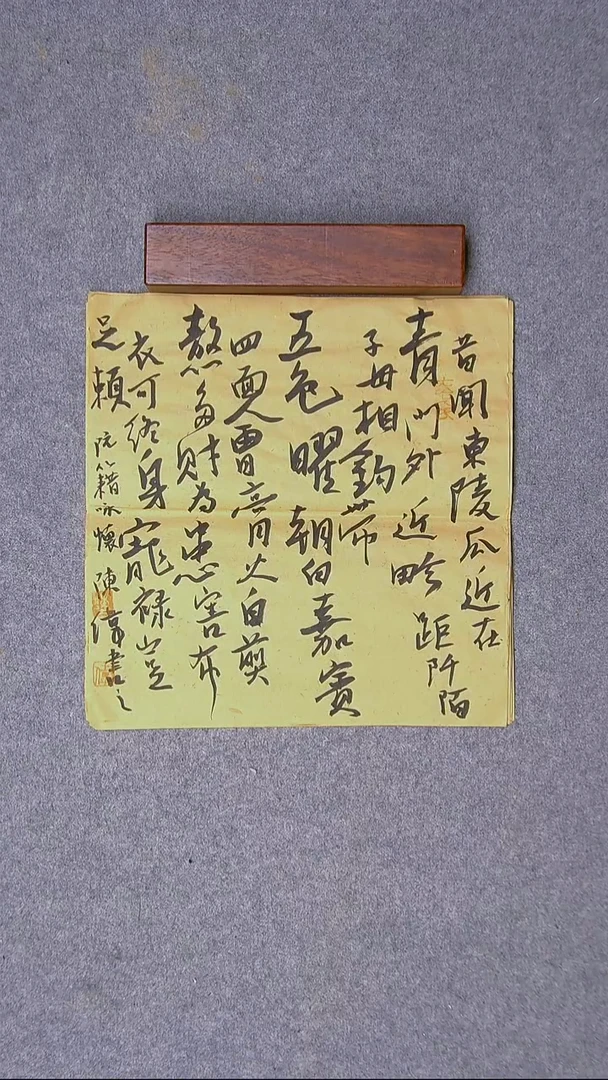 昔聞東陵瓜近在
青門外近畛距阡陌
子母相鈎帶
五色曜朝日嘉賓
四面會膏火自煎
熬多財為患害布
衣可終身寵祿豈
足賴 阮籍咏懷 陳淳書之